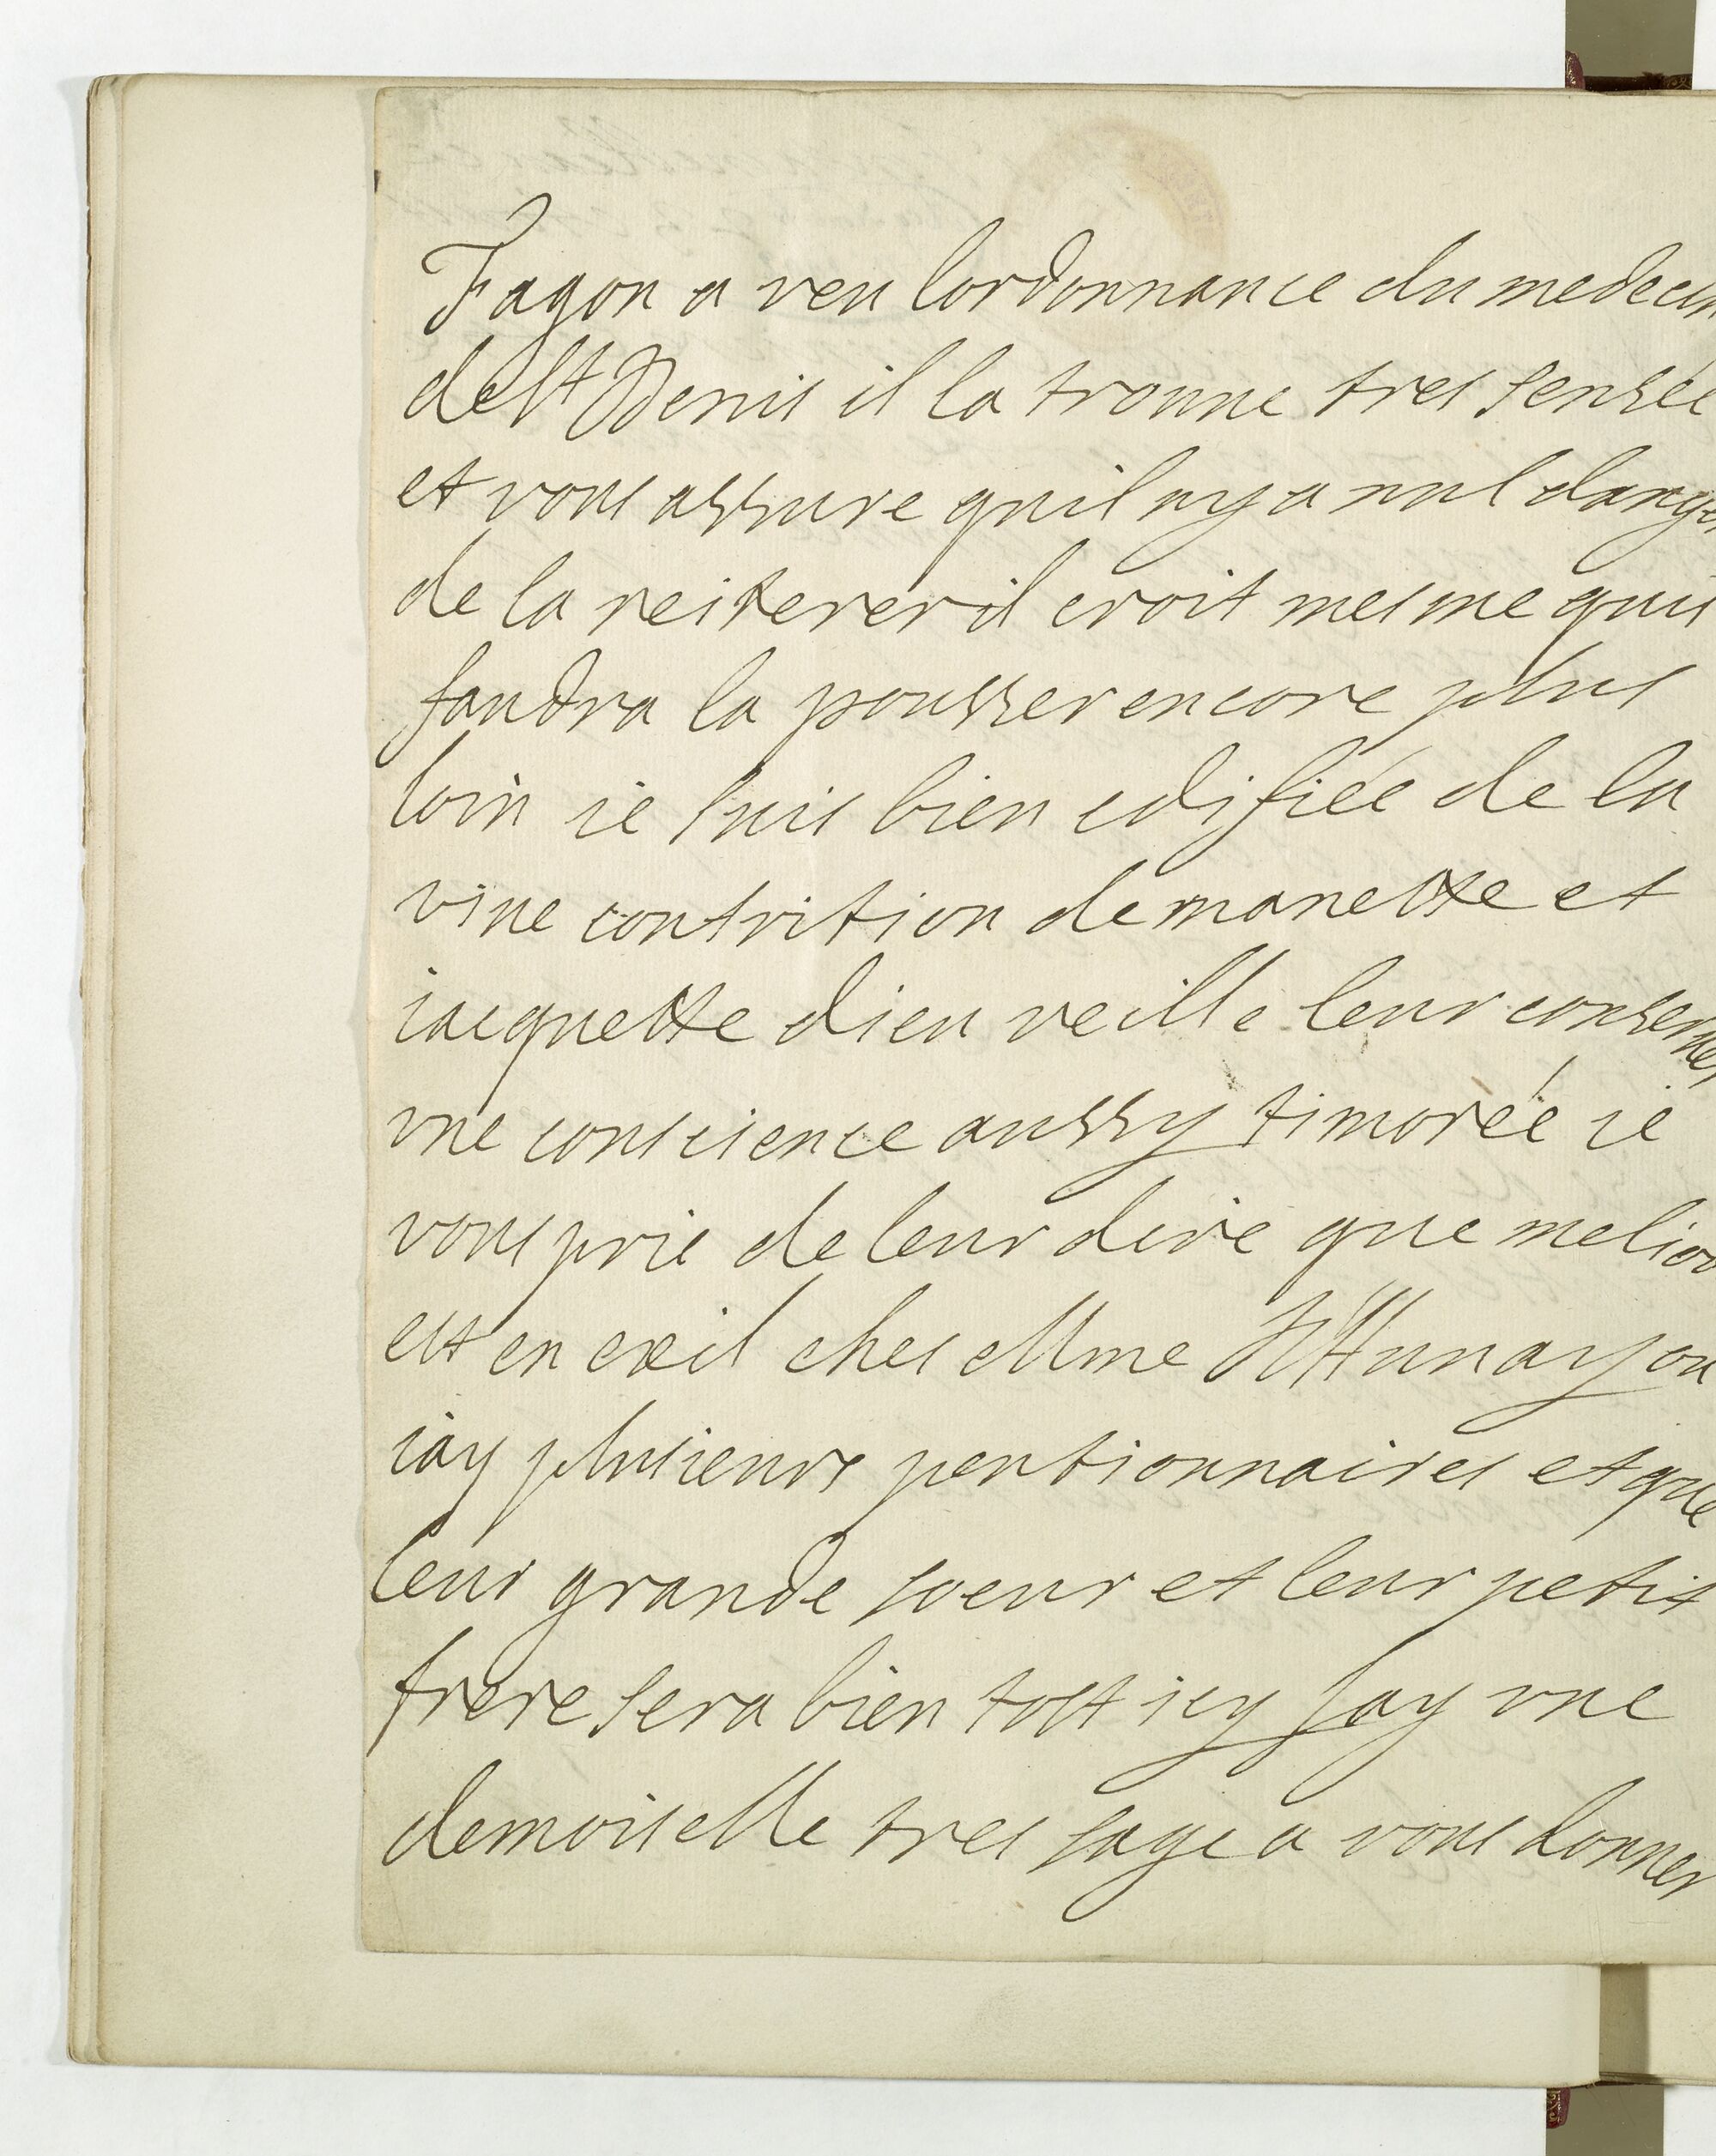 Fagon a veu lordonnance du medecin
de St Denis il la trouve tres sensée
et vous assure quil ny a nul danger
de la reiterer il croit mesme quil
faudra la pousser encore plus
loin ie suis bien edifiée de la
vive contrition de manette et
iacquette dieu veille leur conserver
vne conscience aussy timorée ie
vous prie de leur dire que
est en exil ches Mme on
iay plusieurs pentionnaires et que
leur grande soeur et leur petit
frere sera bien tost icy Jay vne
demoiselle tres sage a vous donner